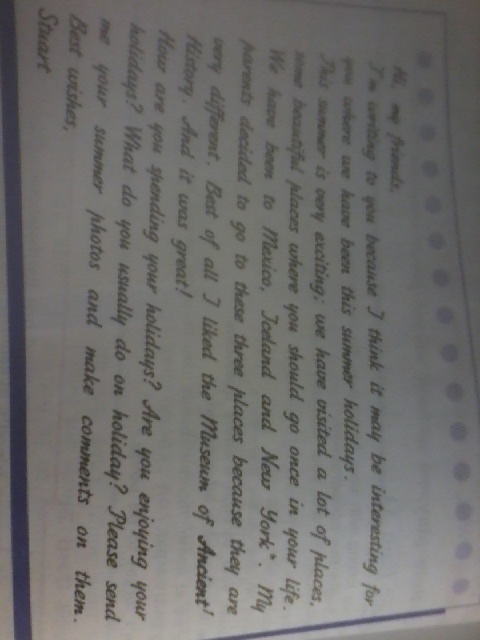 Hi, my friends,
I'm writing to you because I think it may be interesting for
you where we have been this summer holidays.
This summer is very exciting: we have visited a lot of places,
some beautiful places where you should go once in your life.
We have been to Mexico, Iceland and New York*. My
parents decided to go to these three places because they are
very different. Best of all I liked the Museum of Ancient
History. And it was great!
How are you spending your holidays? Are you enjoying your
holidays? What do you usually do on holiday? Please send
me your summer photos and make comments on them.
Best wishes,
Stuart